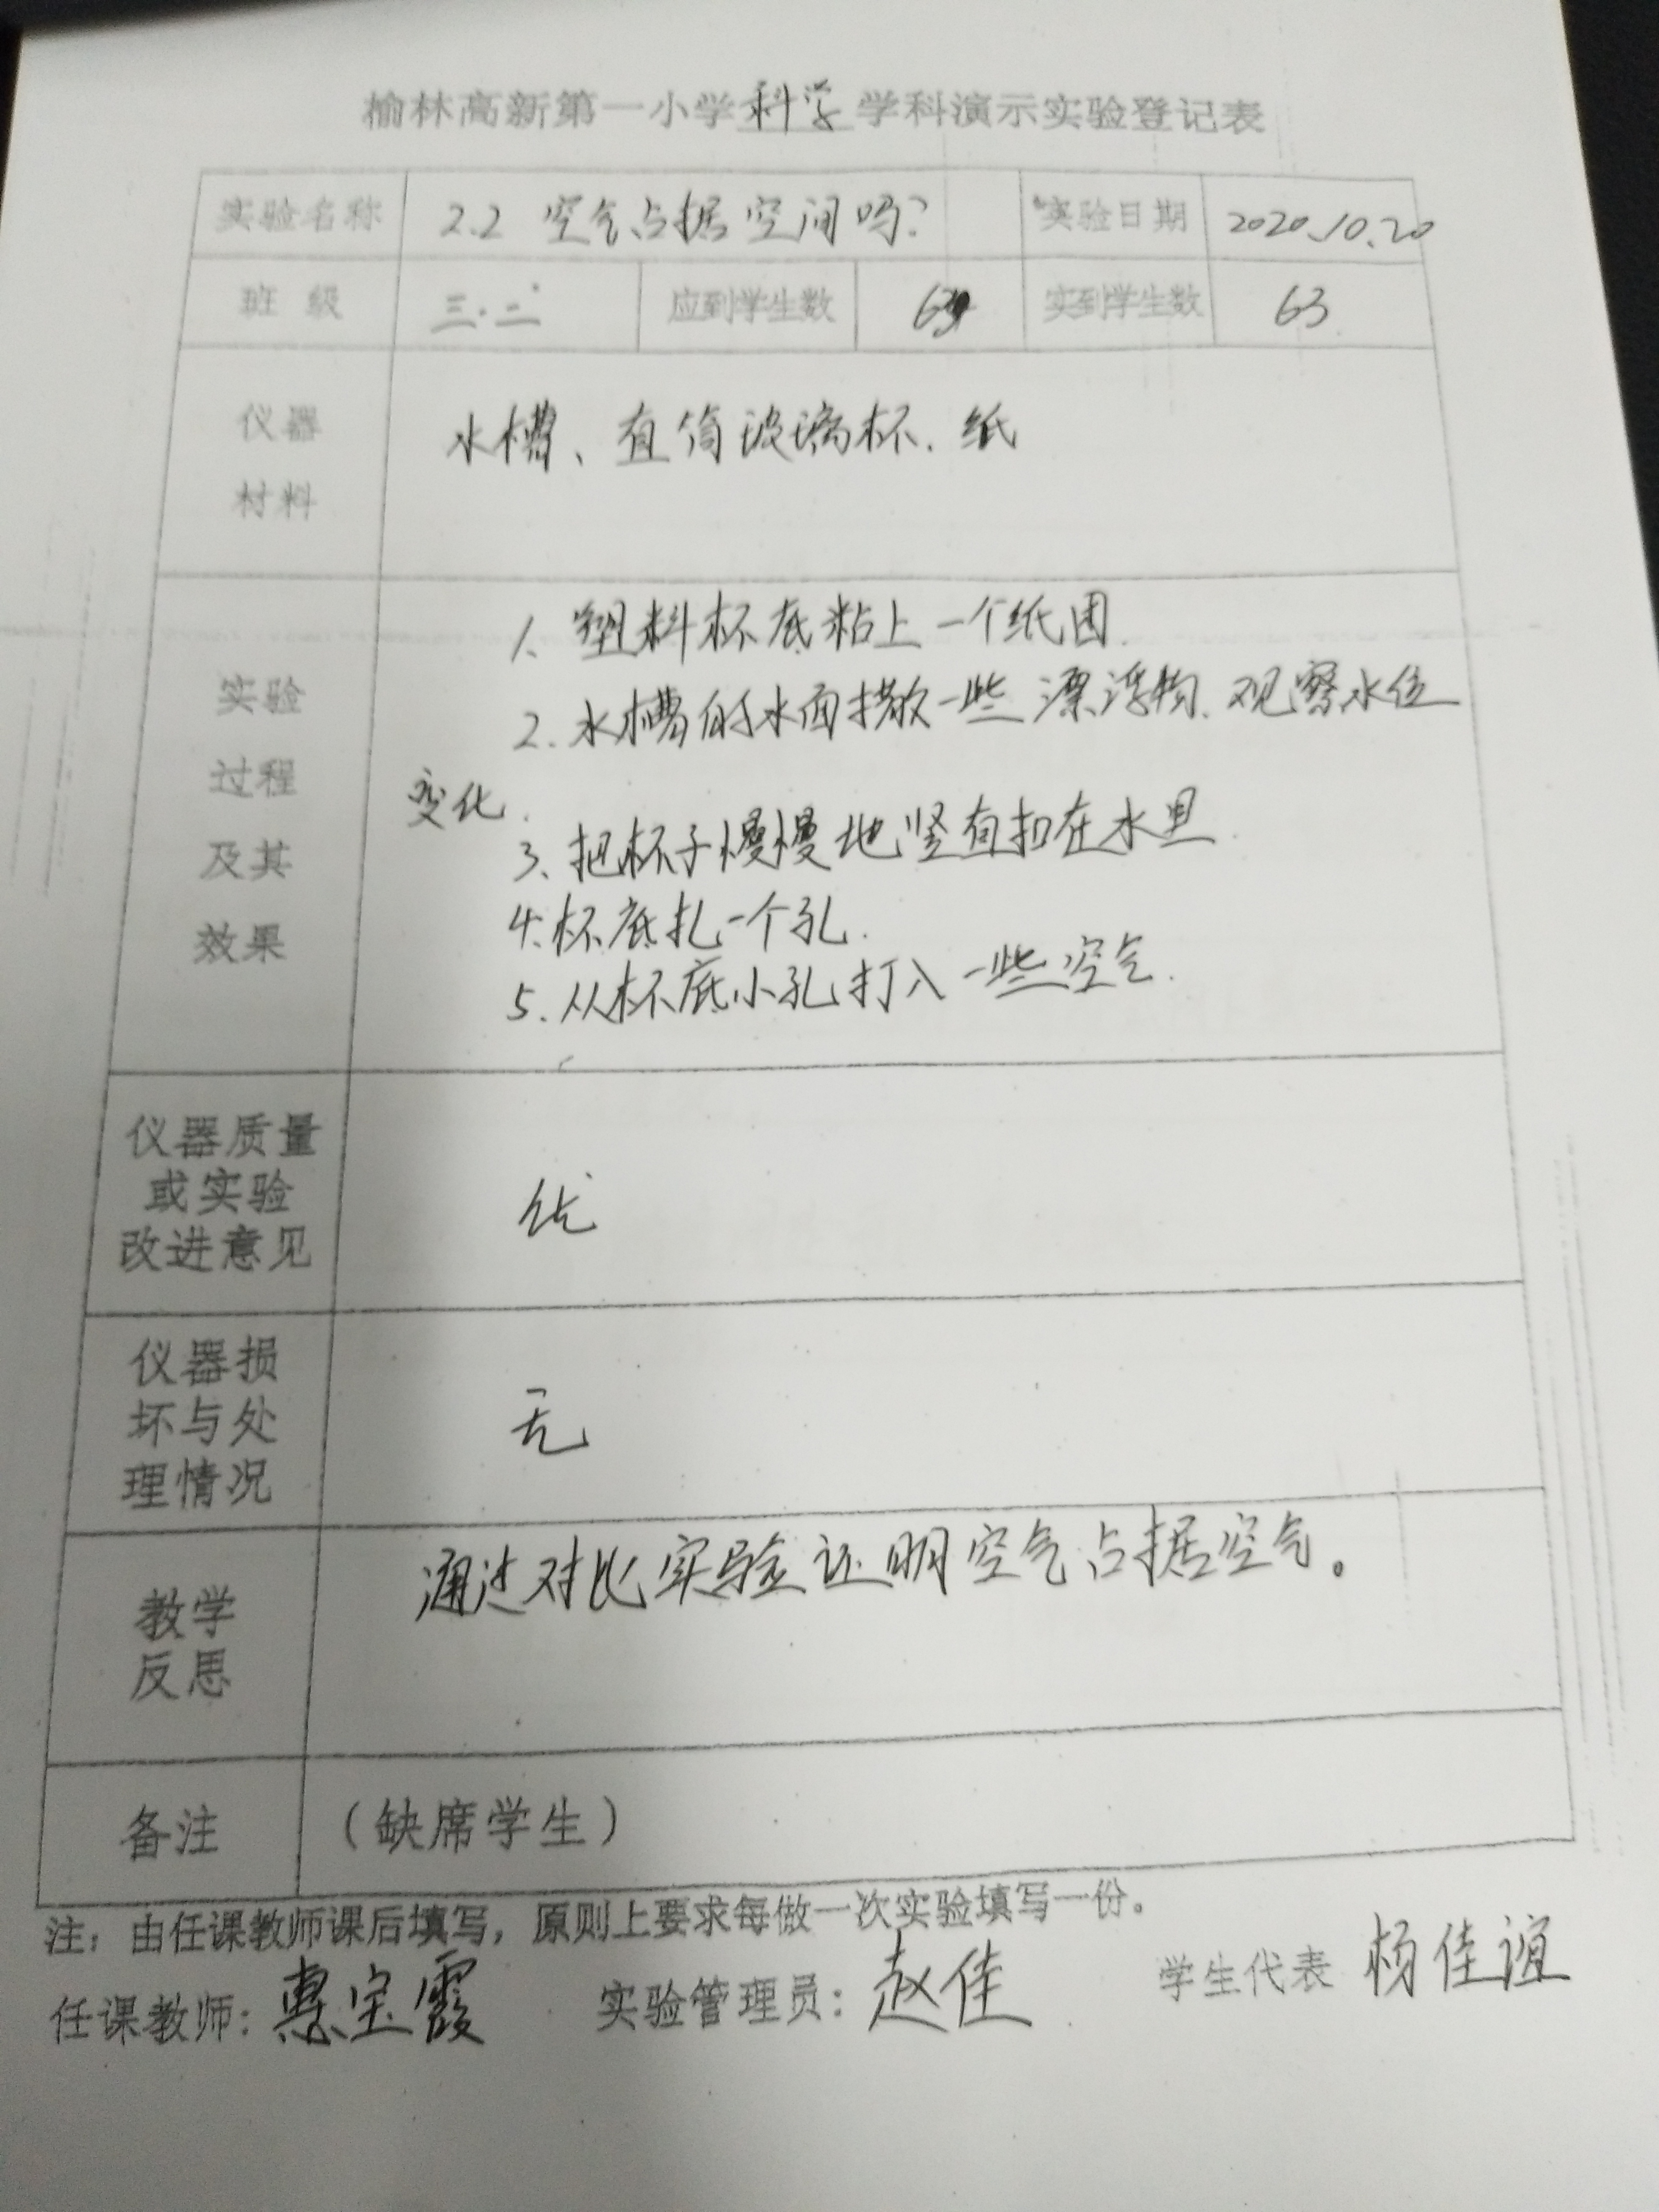 榆林高新第一小学科学学科演示实验登记表
实验名称 2.2 空气占据空间吗? 实验日期 2020.10.20
班 级 三.二 应到学生数 实到学生数 63
仪器
材料
水槽、直筒玻璃杯、纸
实验
过程
及其
效果
1、塑料杯底粘上一个纸团.
2.水槽的水面撒一些漂浮物、观察水位
变化.
3、把杯子慢慢地竖直扣在水里.
4.杯底扎一个孔.
5.从杯底小孔打入一些空气.
仪器质量
或实验
改进意见
优
仪器损
坏与处
理情况
无
教学
反思
通过对比实验证明空气占据空气。
备注 (缺席学生)
注：由任课教师课后填写，原则上要求每做一次实验填写一份。
任课教师：惠宝霞 实验管理员：赵佳 学生代表 杨佳谊